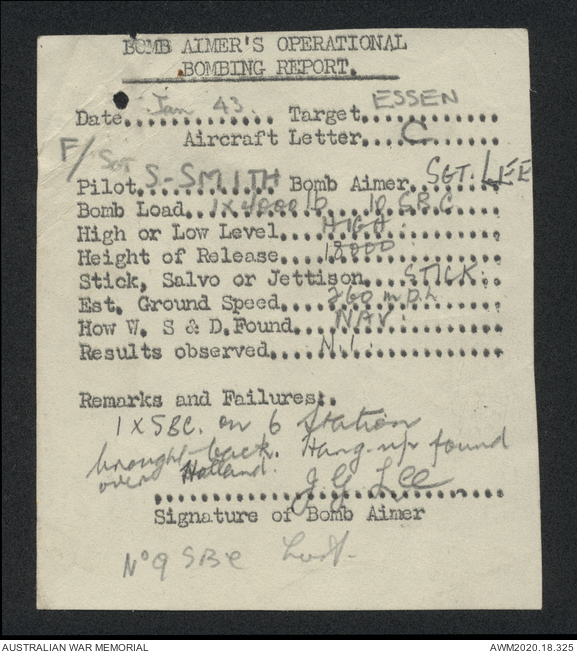 BOMB AIMER'S OPERATIONAL
BOMBING REPORT.
Date Jan 43. Target ESSEN
Aircraft Letter C
F/Sgt
Pilot S-SMITH Bomb Aimer SGT. LEE
Bomb Load 1 x 4000 lb 10 S.B.C
High or Low Level HIGH
Height of Release 18000
Stick, Salvo or Jettison STICK.
Est. Ground Speed 260 m.p.h
How W. S & D. Found NAV.
Results observed N.I.
Remarks and Failures:.
1 x SBC. on 6 Station
brought back. Hang-up found
over Holland.
J G Lee
Signature of Bomb Aimer
No 9 SBC
AUSTRALIAN WAR MEMORIAL
AWM2020.18.325